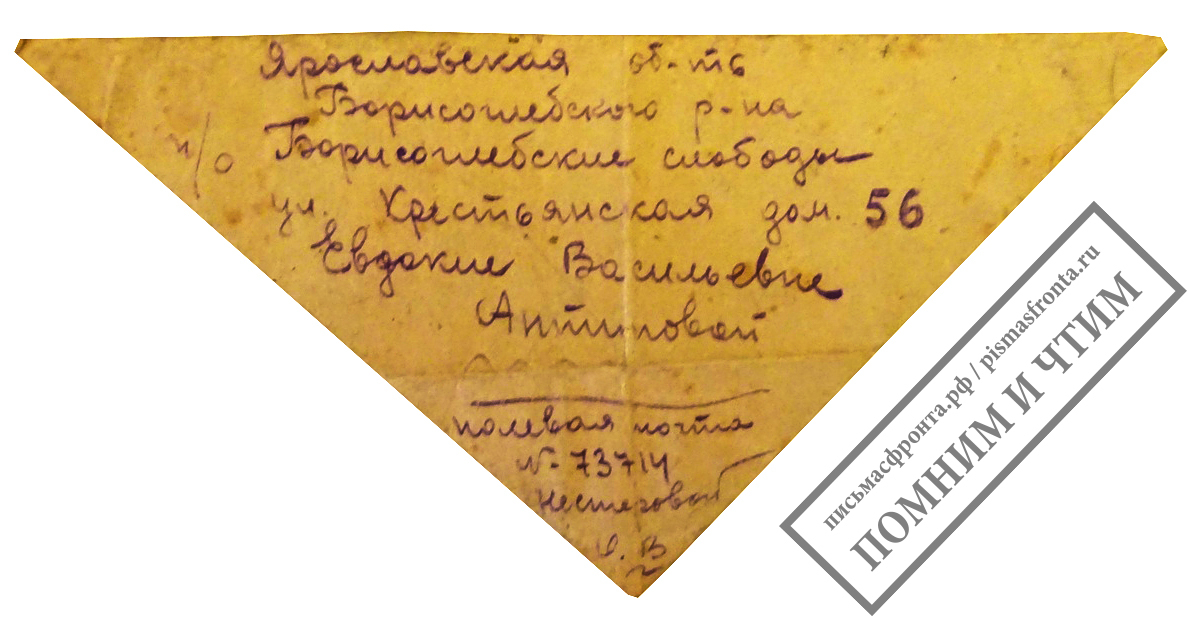 Ярославская об-ть
Борисоглебского р-на
п/о Борисоглебские слободы
ул. Крестьянская дом. 56
Евдокие Васильевне
Антиповой
полевая почта
N-73714
Нестеровой
В
письмасфронта.рф / pismasfronta.ru
ПОМНИМ И ЧТИМ